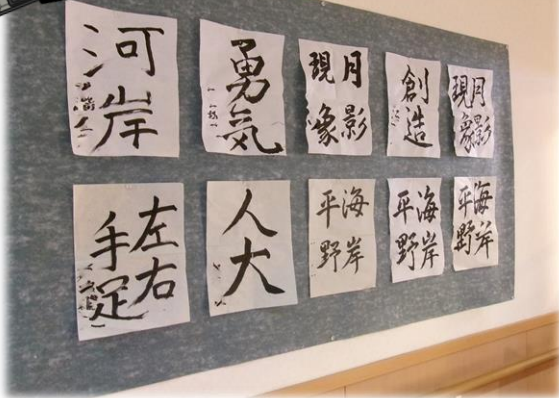 河岸
勇気
月影
現象
創造
月影
現象
左右
手足
人大
海岸
平野
海岸
平野
海岸
平野